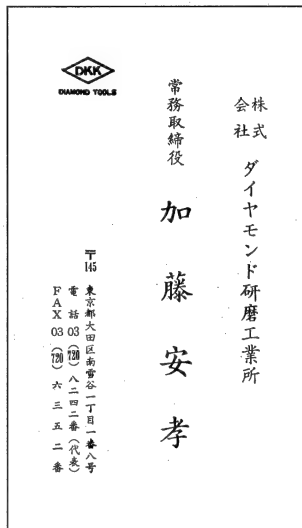 株式会社 ダイヤモンド研磨工業所
常務取締役
加藤安孝
DKK
DIAMOND TOOLS
〒145
東京都大田区南雪谷一丁目一番八号
電話 03 (720) 八二四二番 (代表)
FAX 03 (720) 六三五二番